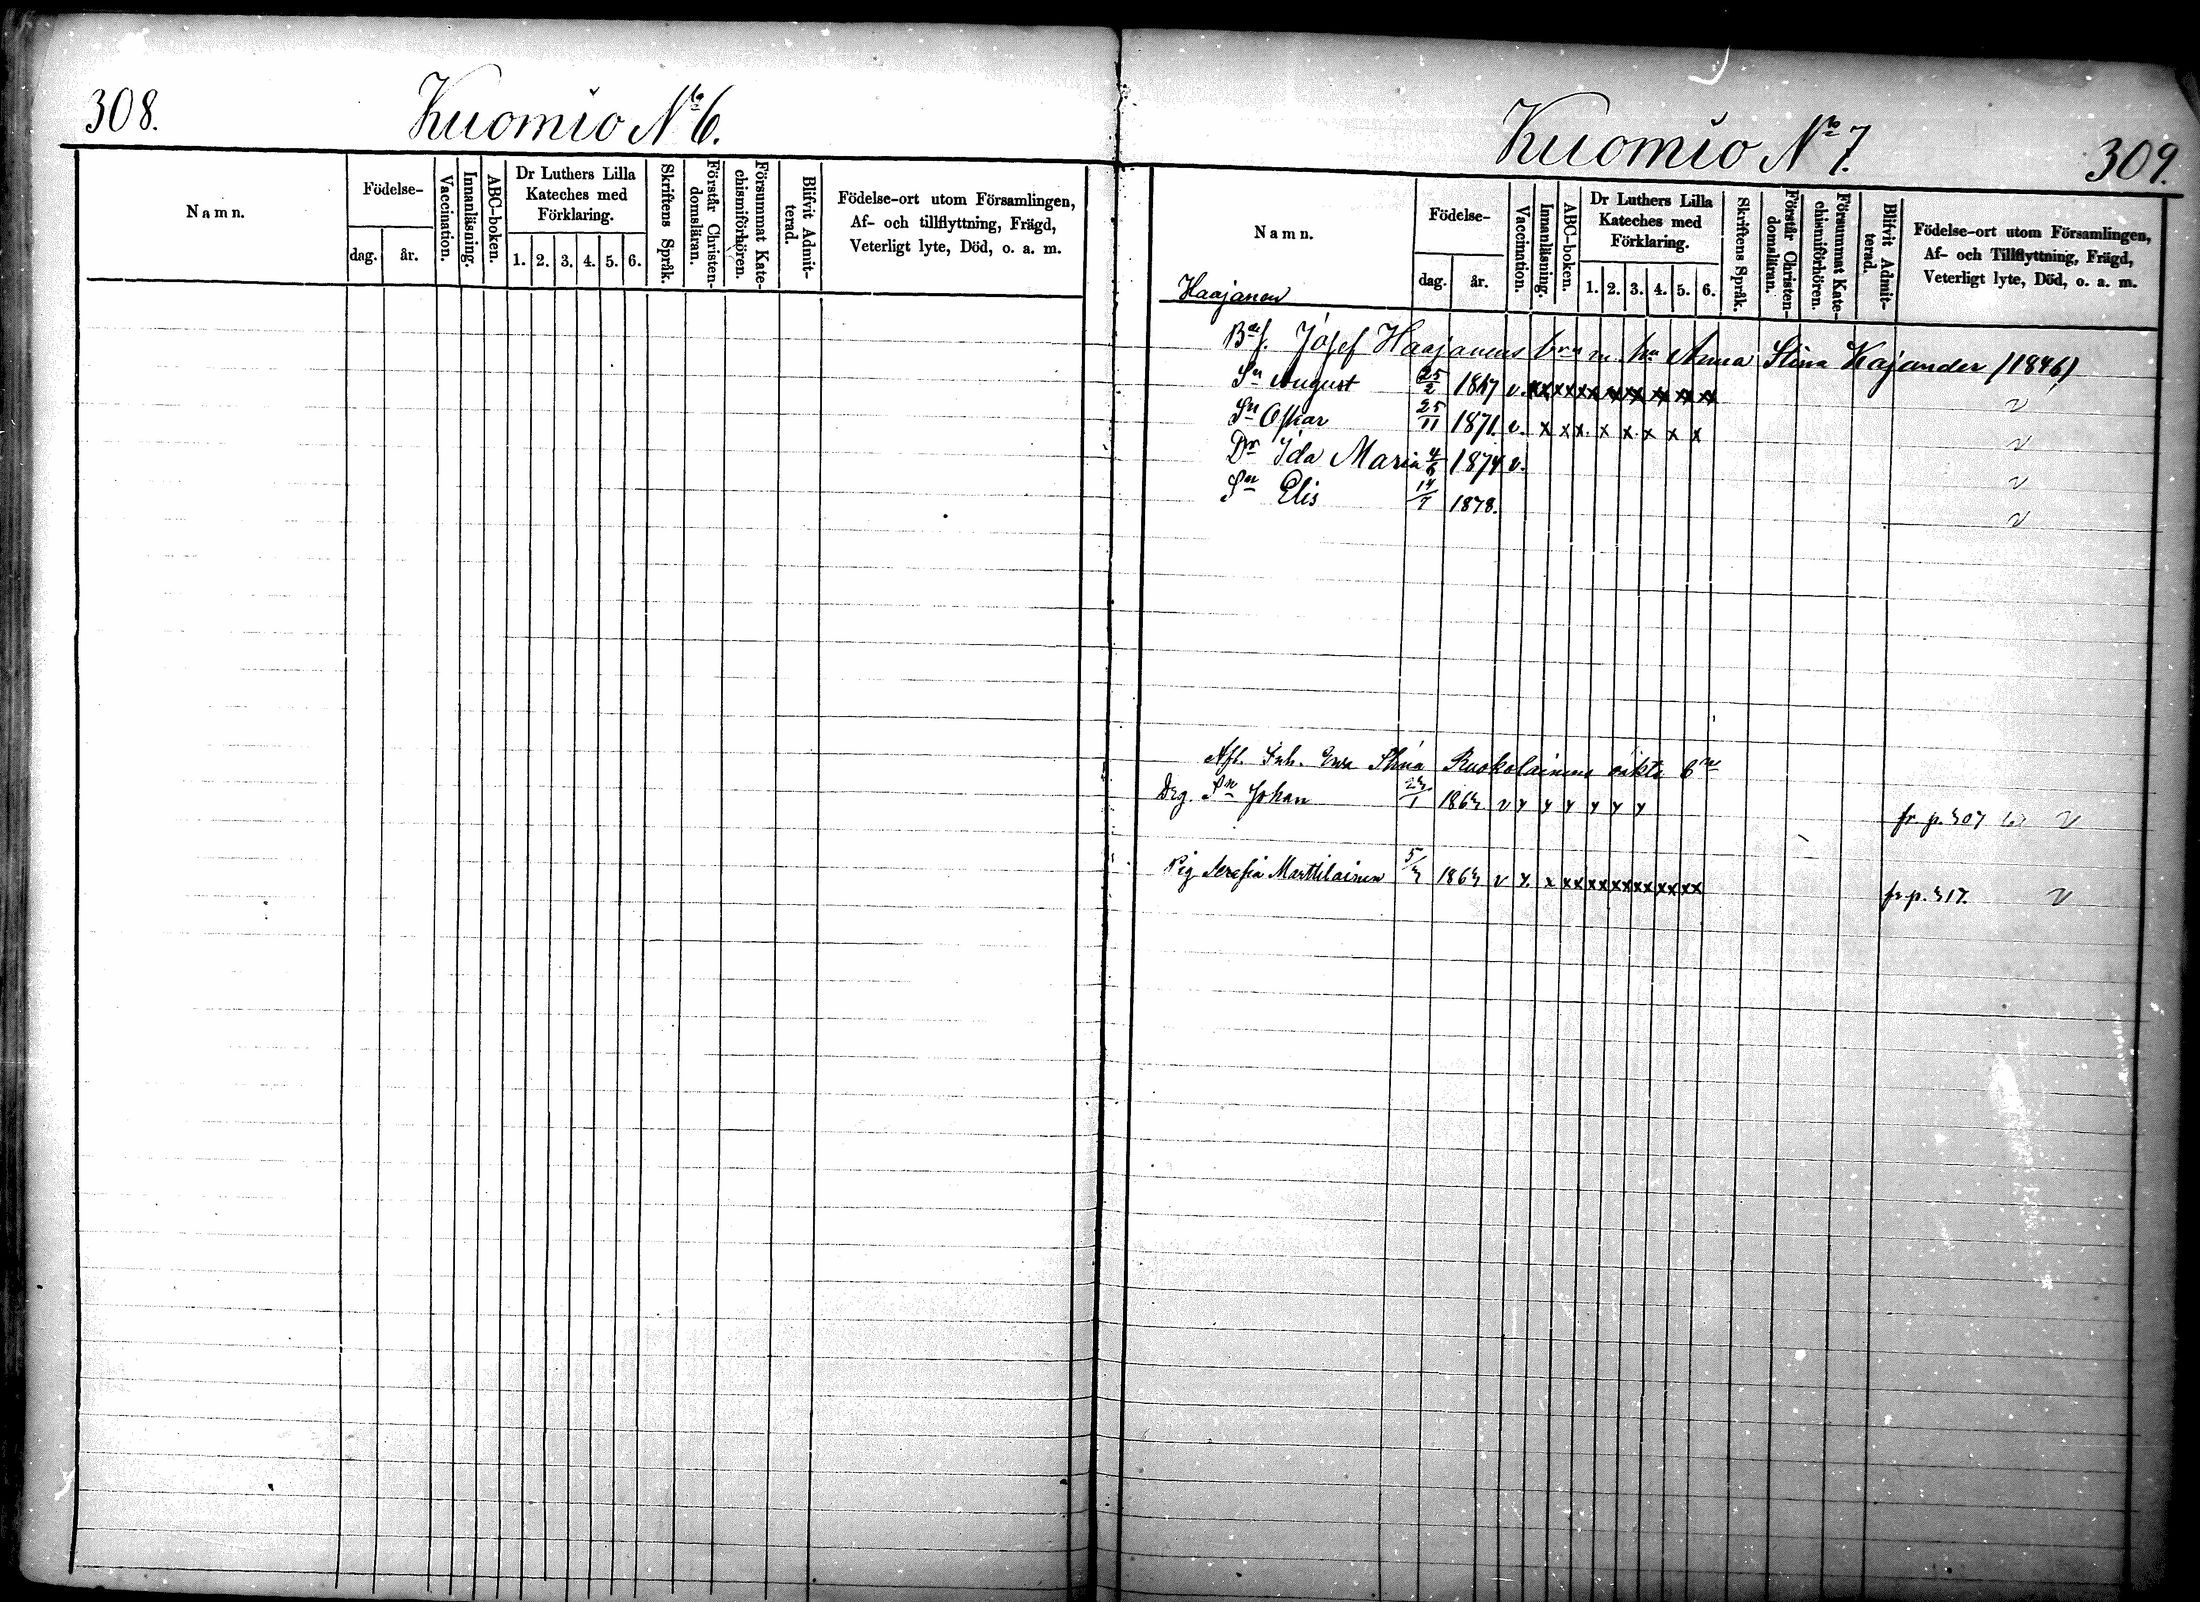 308.
Kuomio No 6.
Namn.
Födelse-
dag.
år.
Vaccination.
Innanläsning.
ABC-boken.
Dr Luthers Lilla
Kateches med
Förklaring.
1. 2. 3. 4. 5. 6.
Skriftens Språk.
Förstår Christen-
domsläran.
Försummat Kate-
chismiförhören.
Blifvit Admit-
terad.
Födelse-ort utom Församlingen,
Af- och tillflyttning, Frägd,
Veterligt lyte, Död, o. a. m.
Kuomio No 7.
309.
Namn.
Födelse-
dag.
år.
Vaccination.
Innanläsning.
ABC-boken.
Dr Luthers Lilla
Kateches med
Förklaring.
1. 2. 3. 4. 5. 6.
Skriftens Språk.
Förstår Christen-
domsläran.
Försummat Kate-
chismiförhören.
Blifvit Admit-
terad.
Födelse-ort utom Församlingen,
Af- och Tillflyttning, Frägd,
Veterligt lyte, Död, o. a. m.
Haajanen
Josef Haajanens brn m. hu Anna Stina Kajander (1846)
Sn August 25/2 1867 v. xx xx xx xx xx xx xx xx v
Sn Oskar 25/11 1871. v. x x x. x x. x x x v
Dr Ida Maria 4/6 1874 v. v
Sn Elis 14/7 1878. v
Afl. Inh. Stina Ruokolainens oäkta
Drg. Sn Johan 1863 v x x x x x x fr. p. 307 v
Pig Serafia Marttilainen 5/3 1863 v x x xx xx xx xx xx xx fr. p. 317. v